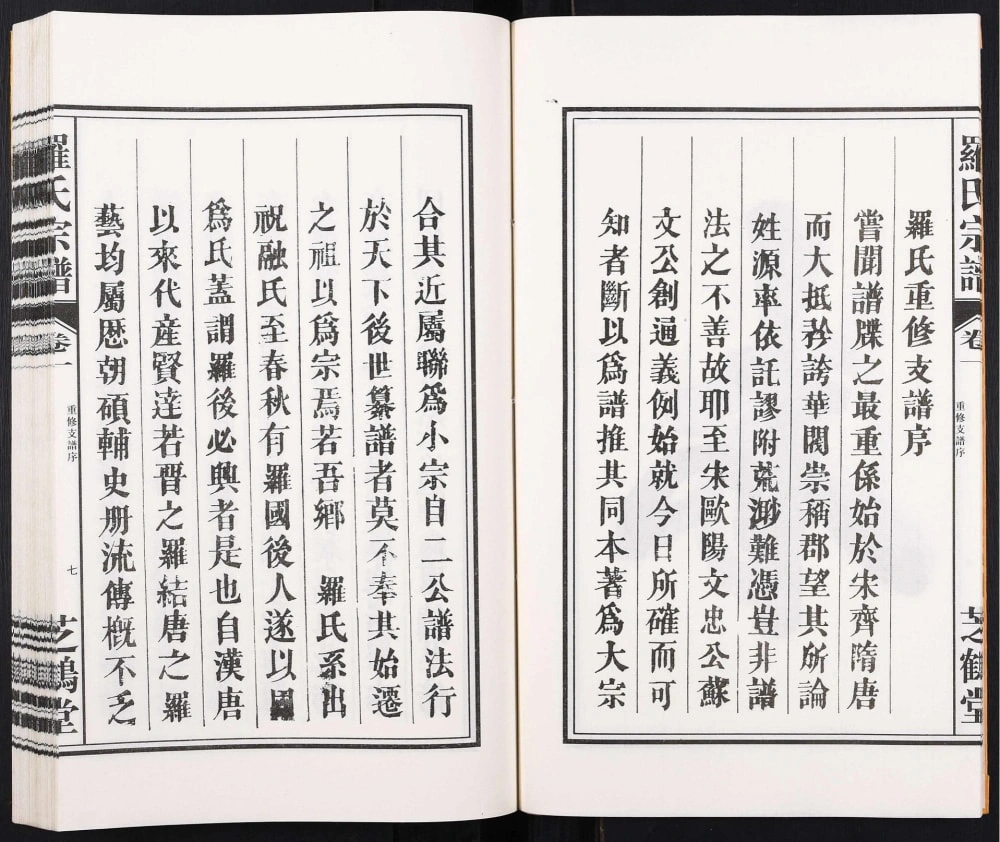 羅氏宗譜 卷一 重修支譜序 芝鶴堂
羅氏重修支譜序
嘗聞譜牒之最重係始於宋齊隋唐
而大抵矜誇華閥崇稱郡望其所論
姓源率依託謬附荒渺難憑豈非譜
法之不善故耶至宋歐陽文忠公蘇
文公創通義例始就今日所確而可
知者斷以爲譜推其同本著爲大宗
合其近屬聯爲小宗自二公譜法行
於天下後世纂譜者莫不奉其始遷
之祖以爲宗焉若吾鄉 羅氏系出
祝融氏至春秋有羅國後人遂以國
爲氏蓋謂羅後必興者是也自漢唐
以來代產賢達若晋之羅結唐之羅
藝均屬歷朝碩輔史册流傳概不乏
羅氏宗譜 卷一 重修支譜序 七 芝鶴堂